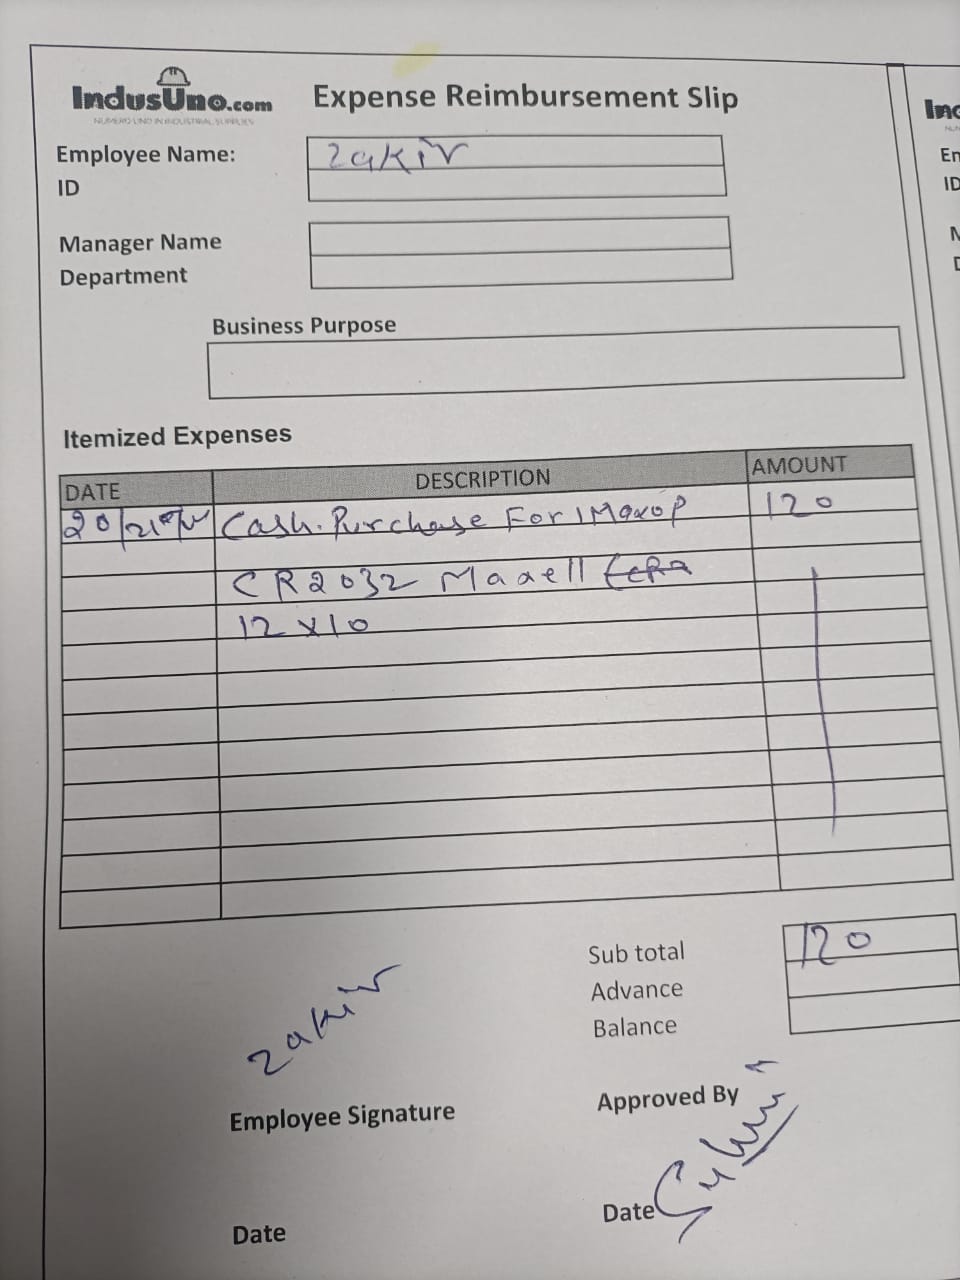 IndusUno.com
NUMERO UNO IN INDUSTRIAL SUPPLIES
Expense Reimbursement Slip
Employee Name: zakir
ID
Manager Name
Department
Business Purpose
Itemized Expenses
DATE DESCRIPTION AMOUNT
Cash.Purchase For IMaxop 120
CR2032 Maxell
12 x 10
Sub total 120
Advance
Balance
zakir
Employee Signature
Approved By
Date
Date